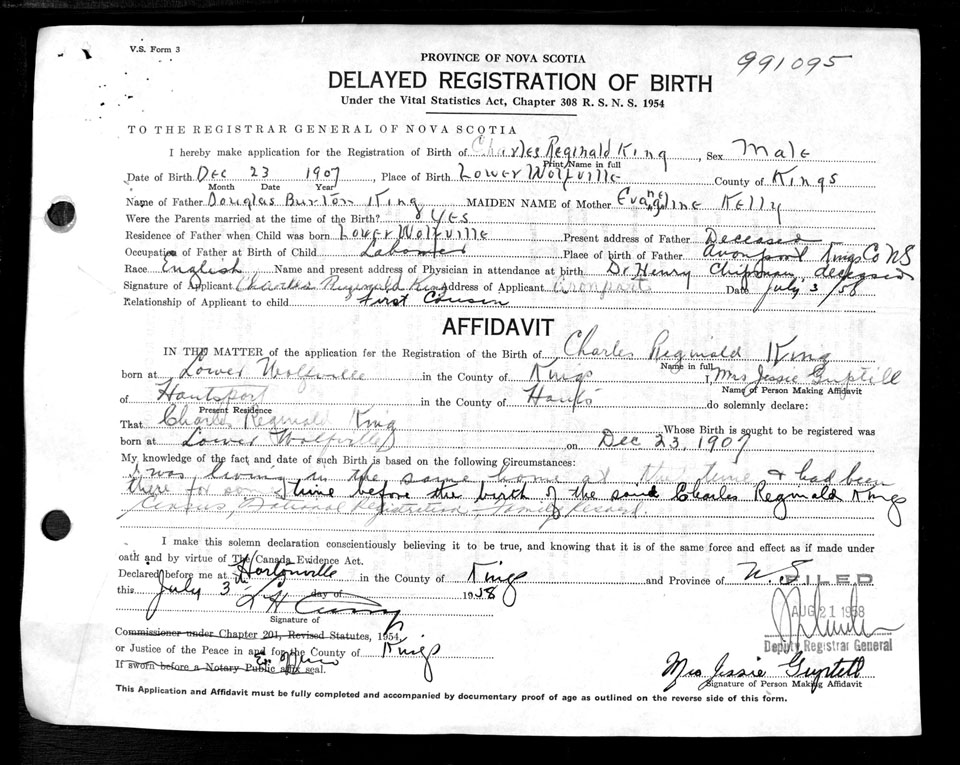 V.S. Form 3
PROVINCE OF NOVA SCOTIA
991095
DELAYED REGISTRATION OF BIRTH
Under the Vital Statistics Act, Chapter 308 R. S. N. S. 1954
TO THE REGISTRAR GENERAL OF NOVA SCOTIA
I hereby make application for the Registration of Birth of Charles Reginald King, Sex Male
Print Name in full
Date of Birth Dec 23 1907, Place of Birth Lower Wolfville County of Kings
Month Date Year
Name of Father Douglas Burton King MAIDEN NAME of Mother Evangeline Kelly
Were the Parents married at the time of the Birth? Yes
Residence of Father when Child was born Lower Wolfville Present address of Father Deceased
Occupation of Father at Birth of Child Laborer Place of birth of Father Avonport Kings Co NS
Race English, Name and present address of Physician in attendance at birth Dr. Henry Chipman, deceased
Signature of Applicant Charles Reginald King Address of Applicant Avonport Date July 3/58
Relationship of Applicant to child First Cousin
AFFIDAVIT
IN THE MATTER of the application for the Registration of the Birth of Charles Reginald King
Name in full
born at Lower Wolfville in the County of Kings I, Mrs Jessie Guptill
Name of Person Making Affidavit
of Hantsport in the County of Hants do solemnly declare:
Present Residence
That Charles Reginald King Whose Birth is sought to be registered was
born at Lower Wolfville on Dec 23, 1907
My knowledge of the fact and date of such Birth is based on the following Circumstances:
I was living in the same home at the time & had been
there for some time before the birth of the said Charles Reginald King
Census, National Registration, Family Record.
I make this solemn declaration conscientiously believing it to be true, and knowing that it is of the same force and effect as if made under
oath and by virtue of The Canada Evidence Act.
Declared before me at Hortonville in the County of Kings and Province of N.S.
FILED
this July 3 day of 1958
AUG 21 1958
Signature of
Commissioner under Chapter 201, Revised Statutes, 1954,
or Justice of the Peace in and for the County of Kings
Deputy Registrar General
If sworn before a Notary Public affix seal.
Mrs Jessie Guptill
Signature of Person Making Affidavit
This Application and Affidavit must be fully completed and accompanied by documentary proof of age as outlined on the reverse side of this form.